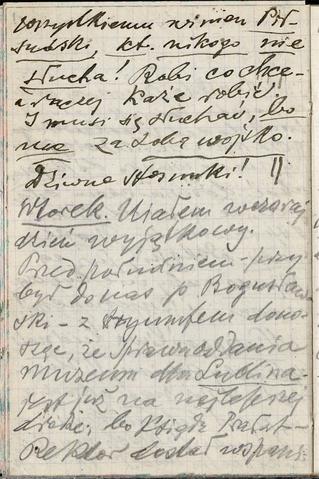 wszystkiemu winien Pił-
sudski, kt. nikogo nie
słucha! Robi co chce -
a raczej każe robić!
I musi się słuchać, bo
ma za sobą wojsko.
Dziwne stosunki! ||
Wtorek. Miałem wczoraj
dzień wyjątkowy.
Przed południem - przy-
był do nas p. Bogusław-
ski - z tryumfem dono-
sząc, że sprawa oddania
muzeum dla Lublina -
jest już na najlepszej
drodze, bo Ksiądz Prałat -
Rektor dostał wspani-